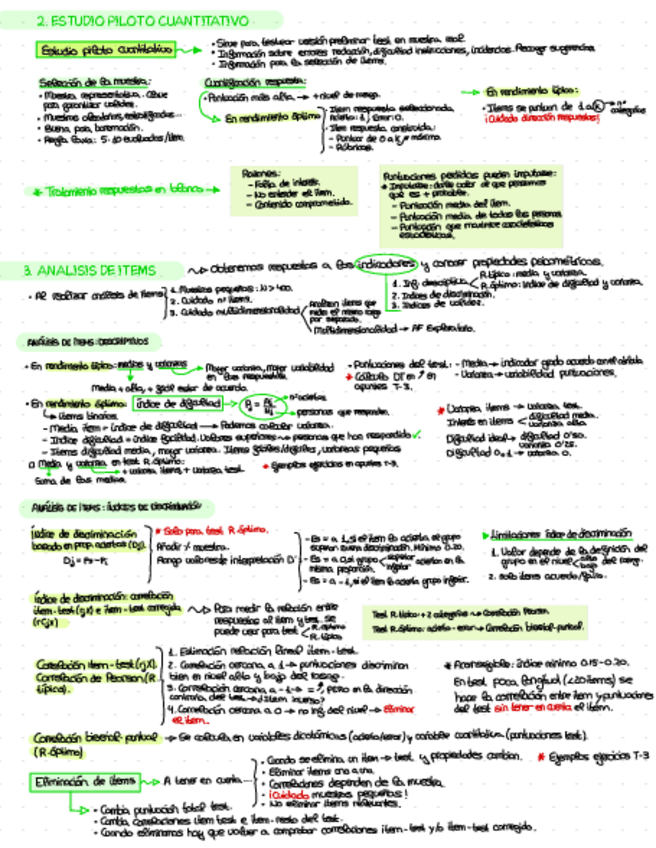 2. ESTUDIO PILOTO CUANTITATIVO
Estudio piloto cuantitativo
• Sirve para testear versión preliminar test en muestra real.
• Información sobre errores redacción, dificultad instrucciones, incidencias. Recoger sugerencias.
• Información para la selección de ítems.
Selección de la muestra:
• Muestra representativa. Clave
para garantizar validez.
• Muestreo aleatorio, estratificado...
• Buena para baremación.
• Regla básica: 5-10 evaluados/ítem.
Cuantificación respuesta:
• Puntuación más alta → + nivel de rasgo.
En rendimiento óptimo
• Ítem respuesta seleccionada,
Acierto: 1, Error: 0.
• Ítem respuesta construida:
- Puntuar de 0 a K = máximo.
- Rúbricas.
→ En rendimiento típico:
• Items se puntúan de 1 a K → nº categorías
¡Cuidado dirección respuestas!
* Tratamiento respuestas en blanco →
Razones:
- Falta de interés.
- No entender el ítem.
- Contenido comprometido.
Puntuaciones perdidas pueden imputarse:
* Imputar: darle valor al que pensamos
que es + probable.
- Puntuación media del ítem.
- Puntuación media de todas las personas
- Puntuación que maximice características
3. ANALISIS DE ITEMS
Obtenemos respuestas a los indicadores y conocer propiedades psicométricas.
• Al realizar análisis de ítems
1. Muestras pequeñas: N > 400.
2. Cuidado nº ítems.
3. Cuidado multidimensionalidad
Analizar ítems que
mide el mismo rasgo
por separado.
Multidimensionalidad → AF Exploratorio.
1. Inf. descriptiva
R. típico: media y varianza.
R. óptimo: índice de dificultad y varianza
2. Índices de discriminación.
3. Índices de validez.
ANÁLISIS DE ÍTEMS: DESCRIPTIVOS
• En rendimiento típico: medias y varianzas
Mayor varianza, mayor variabilidad
en las respuestas.
Media + alta, + grado estar de acuerdo.
• Puntuaciones del test: - Media → indicador grado acuerdo con el
- Varianza → variabilidad puntuaciones.
apuntes T-3.
• En rendimiento óptimo: índice de dificultad
nº aciertos
personas que responden.
→ Ítems binarios.
- Media ítem = índice de dificultad → Podemos calcular varianza.
- Índice dificultad = índice facilidad. Valores superiores → personas que han respondido ✓
- Ítems dificultad media, mayor varianza. Ítems fáciles/difíciles, varianzas pequeñas
□ Media y varianza en test R. óptimo:
+ varianza ítems, + varianza test.
Suma de las medias
* Ejemplos ejercicios en apuntes T-3.
* Varianza ítems → varianza test.
Interés en ítems
dificultad media.
varianza alta.
Dificultad ideal → dificultad 0'50.
varianza 0'25.
Dificultad 0 o 1 → varianza 0.
ANÁLISIS DE ÍTEMS: ÍNDICES DE DISCRIMINACIÓN
Índice de discriminación
basado en prop. aciertos (Dj)
* Solo para test R. óptimo.
Añadir % muestra.
Rango valores de interpretación D
- Es = a 1, si el ítem lo acierta el grupo
superior. Buena discriminación. Mínimo 0.20.
- Es = a 0, si grupo superior inferior aciertan en la
misma proporción.
- Es = a -1, si el ítem lo acierta grupo inferior.
Limitaciones índice de discriminación
1. Valor depende de la definición del
grupo en el nivel alto bajo del rasgo.
2. Solo ítems acuerdo/fallo.
Índice de discriminación: correlación
ítem-test (rjx) e ítem-test corregida
(rcjx)
Para medir la relación entre
respuestas al ítem y test. Se
puede usar para test
R. óptimo
R. típico
Test R. típico: +2 categorías → Correlación Pearson.
Test R. óptimo: acierto - error → Correlación biserial-puntual.
Correlación ítem-test (rjx).
Correlación de Pearson (R.
típico).
1. Estimación relación lineal ítem-test.
2. Correlación cercana a 1 → puntuaciones discriminan
bien en nivel alto y bajo del rasgo.
3. Correlación cercana a -1 → = ↑, pero en la dirección
contraria del test → ¿Ítem inverso?
4. Correlación cercana a 0 → no inf. del nivel → Eliminar
el ítem.
* Aconsejable: índice mínimo 0.15-0.20.
En test poca longitud (<20 ítems) se
hace la correlación entre ítem y puntuaciones
del test sin tener en cuenta el ítem.
Correlación biserial-puntual
(R. óptimo)
→ Se calcula en variables dicotómicas (acierto/error) y variable cuantitativa (puntuaciones test).
Eliminación de ítems
A tener en cuenta
• Cuando se elimina un ítem → test y propiedades cambian.
• Eliminar ítems uno a uno.
• Correlaciones dependen de la muestra.
• ¡Cuidado muestras pequeñas!
• No eliminar ítems relevantes.
* Ejemplos ejercicios T-3
• Cambia puntuación total test.
• Cambia correlaciones ítem test e ítem-resto del test.
• Cuando eliminamos hay que volver a comprobar correlaciones ítem-test y/o ítem-test corregido.